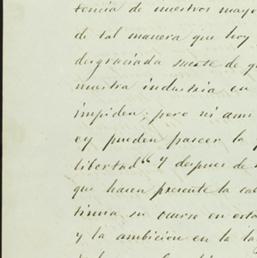 tencia de nuestros mayo
de tal manera que hoy
desgraciada suerte de q
nuestra industria en
impiden; pero ni aun
ey pueden pascer la p
libertad" y despues de
que hacen presente la ca
tinua su curso en esta
y la ambicion en la la